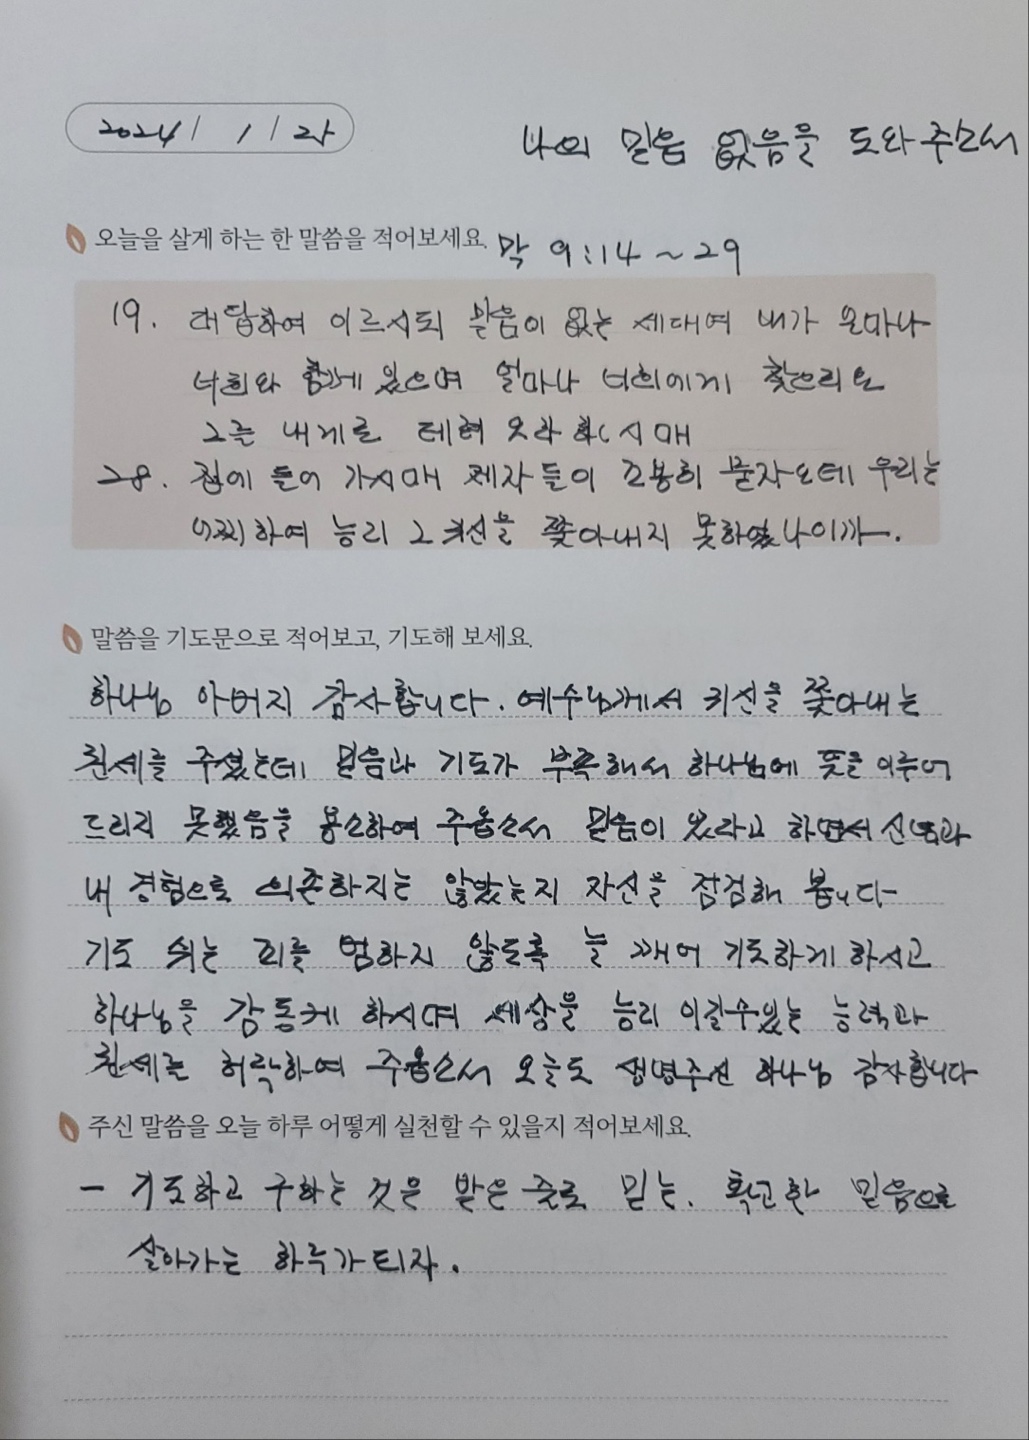 2024 / 1 / 25
나의 믿음 없음을 도와주소서
오늘을 살게 하는 한 말씀을 적어보세요. 막 9:14~29
19. 대답하여 이르시되 믿음이 없는 세대여 내가 얼마나
너희와 함께 있으며 얼마나 너희에게 참으리요
그를 내게로 데려 오라 하시매
28. 집에 들어 가시매 제자들이 조용히 묻자오되 우리는
어찌하여 능히 그 귀신을 쫓아내지 못하였나이까.
말씀을 기도문으로 적어보고, 기도해 보세요.
하나님 아버지 감사합니다. 예수님께서 귀신을 쫓아내는
권세를 주셨는데 믿음과 기도가 부족해서 하나님에 뜻을 이루어
드리지 못했음을 용소하여 주옵소서 믿음이 있라고 하면서
내 경험으로 의존하지는 않았는지 자신을 점검해 봅니다
기도 쉬는 죄를 범하지 않도록 늘 깨어 기도하게 하시고
하나님을 감동케 하시며 세상을 능히 이길수있는 능력과
권세를 허락하여 주옵소서 오늘도 생명주신 하나님 감사합니다
주신 말씀을 오늘 하루 어떻게 실천할 수 있을지 적어보세요.
- 기도하고 구하는 것은 받은 줄로 믿는. 확고한 믿음으로
살아가는 하루가 되자.